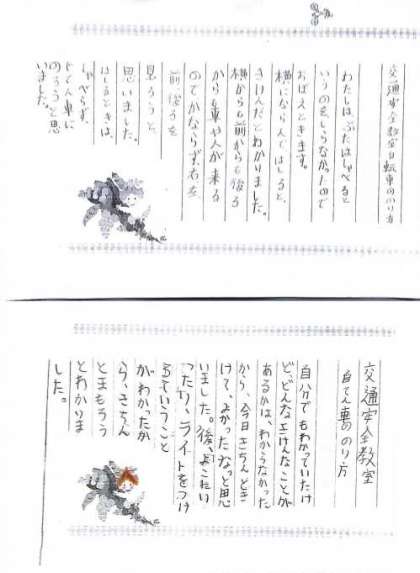 交通安全教室自転車ののり方
わたしは、ぶたはしゃべると
いうのをしらなかったので
おぼえときます。
横にならんではしると、
きけんだとわかりました。
横からも前からも後ろ
からも車や人が来る
のでかならず、右左
前後ろを
見ようと
思いました。
はしるときは、
しゃべらず、
じてん車に
のろうと思
いました。
交通安全教室
自てん車ののり方
自分でもわかっていたけ
ど、どんなきけんなことが
あるかは、わからなかった
から、今日きちんとき
けて、よかったなっと思
いました。後、よこにい
ったり、ライトをつけ
るということ
がわかったか
ら、きちん
とまもろう
とわかりま
した。